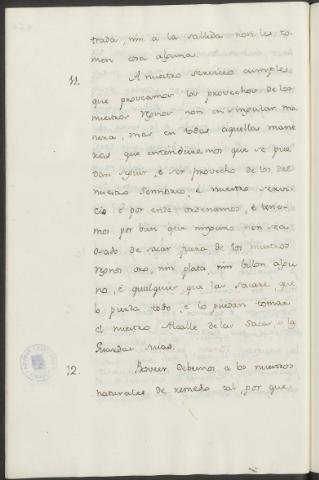 trada, nin á la sallida non les to-
men cosa alguna.
11. A nuestro servicio cumple
que proveamos los provechos de los
nuestros Regnos non en singular ma
nera, mas en todas aquellas mane
ras que entendieremos que se pue
dan seguir, é ser provecho de los del
nuestro Señorio, é nuestro servi-
cio é por ende ordenamos, é tene-
mos por bien que ninguno non sea
osado de sacar fuera de los nuestros
Regnos oro, nin plata, nin billon algu
no, é qualquier que las sacare que
lo pierda todo, é lo puedan tomar
el nuestro Alcalle de las Sacas, o la
Guardas suas.
12. Proveer debemos a los nuestros
naturales de remedio tal, por que